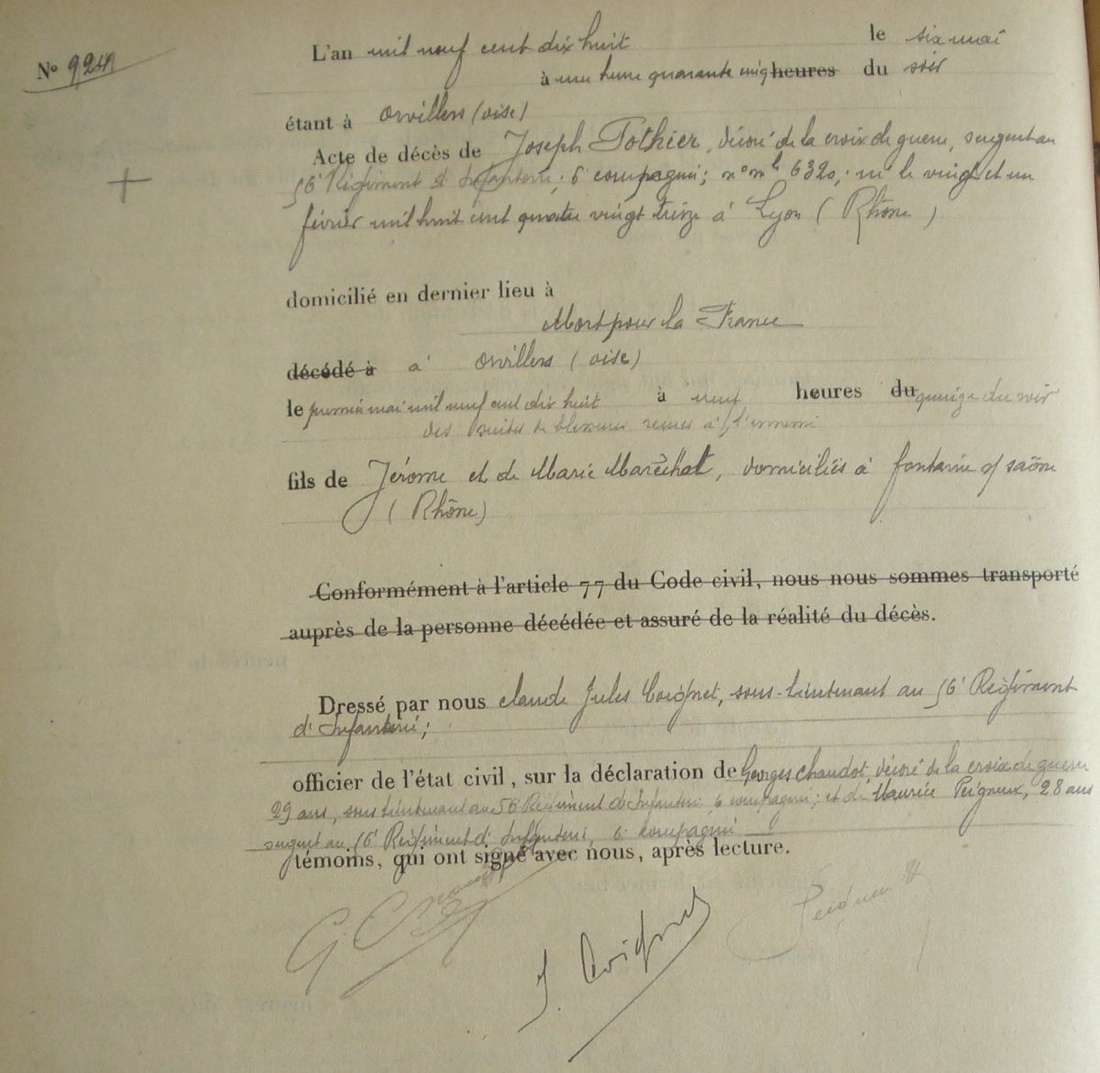 L'an mil neuf cent dix huit le six mai
N° 924
à une heure quarante cinq heures du soir
étant à Orvillers (oise)
Acte de décès de Joseph Pothier, décoré de la croix de guerre, sergent au
56e Régiment d'Infanterie, 6e compagnie; n° ml 6320, né le vingt et un
février mil huit cent quatre vingt treize à Lyon (Rhône)
domicilié en dernier lieu à
Mort pour la France
décédé à à Orvillers (oise)
le premier mai mil neuf cent dix huit à neuf heures du quinze du soir
des suites de blessures reçues à l'ennemi
fils de Jérome et de Marie Maréchal, domiciliés à fontaine s/ saône
(Rhône)
Conformément à l'article 77 du Code civil, nous nous sommes transporté
auprès de la personne décédée et assuré de la réalité du décès.
Dressé par nous claude Jules Coignet, sous-lieutenant au 56e Régiment
d'Infanterie;
officier de l'état civil, sur la déclaration de Georges Chaudot, décoré de la croix de guerre
29 ans, sous lieutenant au 56e Régiment d'Infanterie, 6e compagnie; et de Maurice Peigneux, 28 ans
sergent au 56e Régiment d'Infanterie, 6e compagnie
témoins, qui ont signé avec nous, après lecture.
J. Coignet